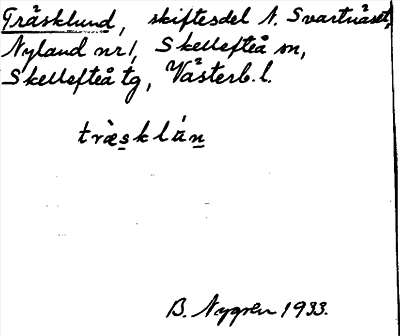 Träsklund, skiftesdel N. Svartnäset,
Nyland nr 1, Skellefteå sn,
Skellefteå tg, Västerb. l.
tràsklún
B. Nygren 1933.